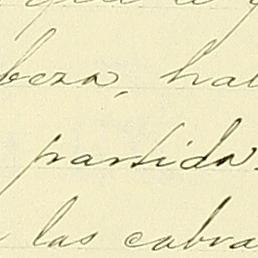 beza, ha
partida
las cabra